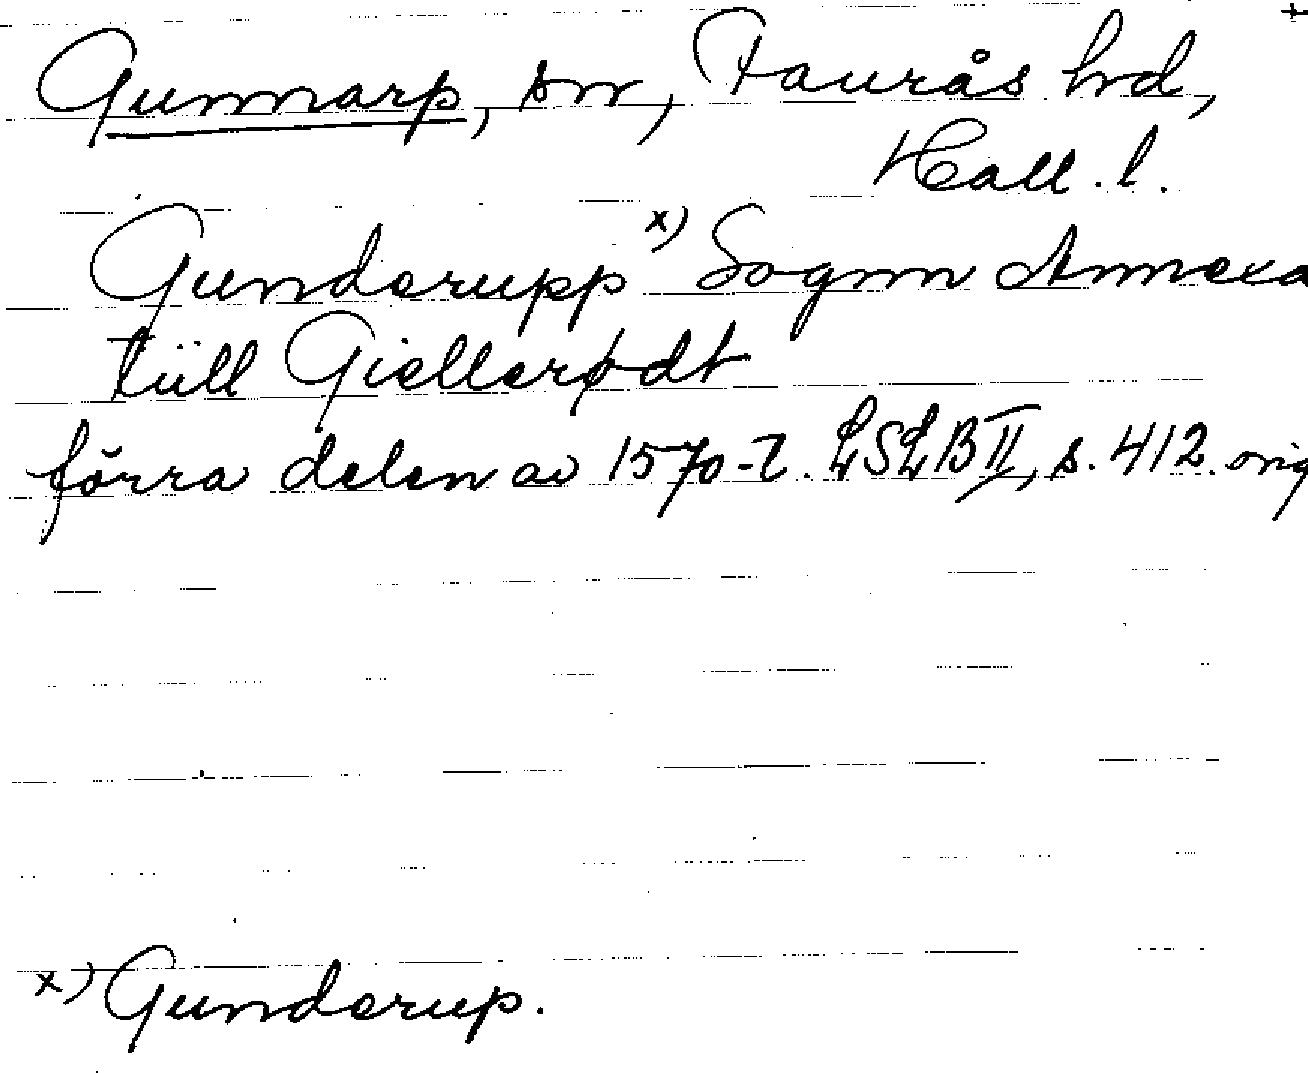 Gunnarp, sn, Faurås hd,
Hall. l.
Gunderupp x) Sognn Annexa
tiill Giellerødt
förra delen av 1570-t. LSLB II, s. 412. orig
x) Gunderup.